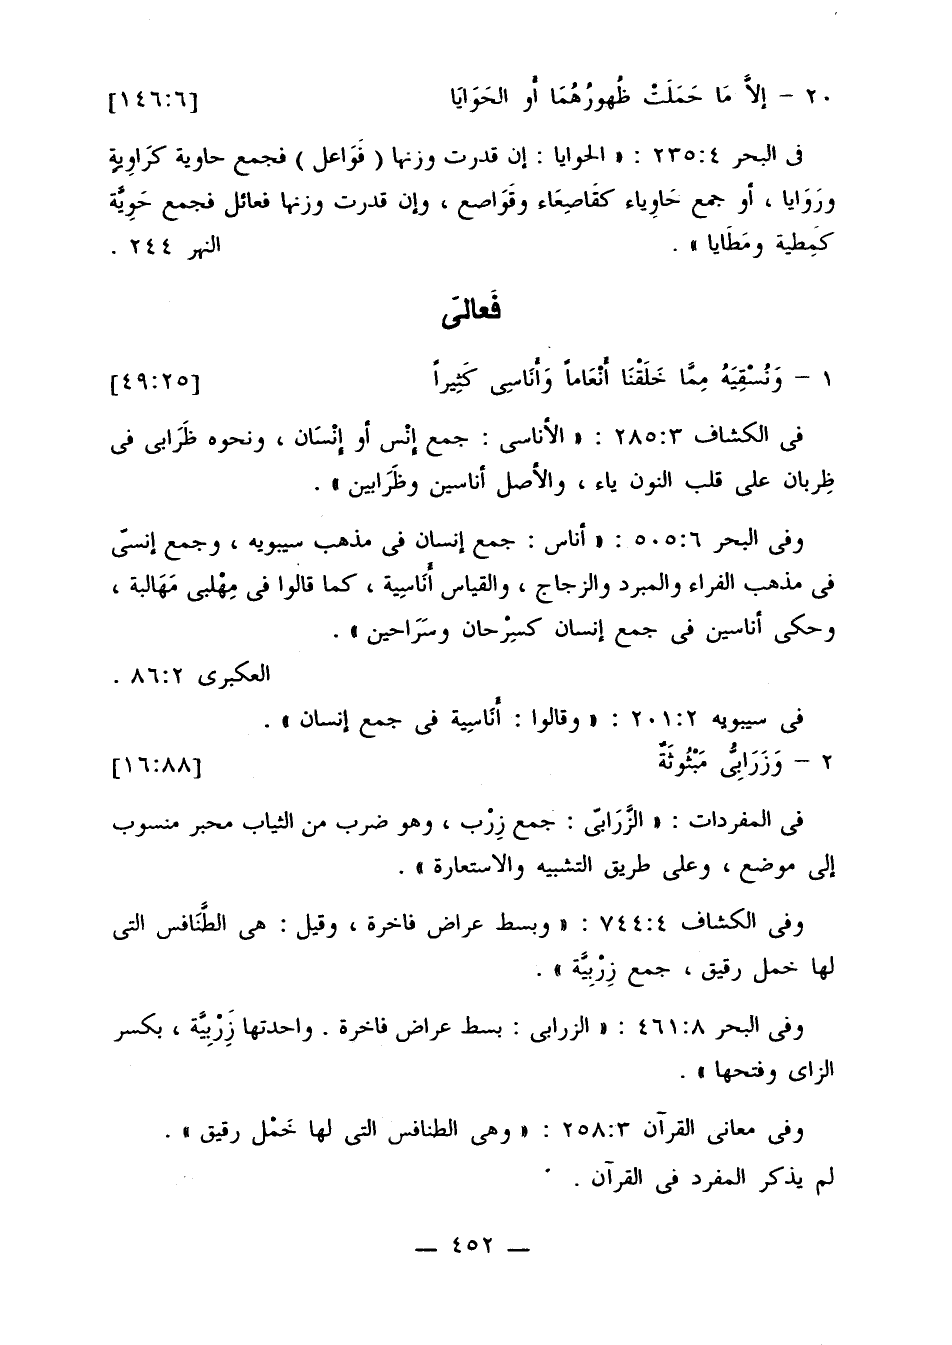 ٢٠ – إلاَّ مَا حَمَلَتْ ظُهورُهُمَا أو الحَوَايَا [١٤٦:٦]
فى البحر ٢٣٥:٤ : « الحوايا : إن قدرت وزنها ( فَوَاعل ) فجمع حاوية كرَاوِيةٍ
ورَوَايا ، أو جمع حَاوِياء كقَاصِعَاء وقَواصع ، وإن قدرت وزنها فعائل فجمع حَوِيَّة
كمَطية ومَطَايا » . النهر ٢٤٤ .
فَعالىّ
١ – وَنُسْقِيَهُ مِمَّا خَلَقْنَا أَنْعَاماً وَأَنَاسِى كَثِيراً [٤٩:٢٥]
فى الكشاف ٢٨٥:٣ : « الأناسى : جمع إنْس أو إنْسَان ، ونحوه ظَرَابى فى
ظِربان على قلب النون ياء ، والأصل أناسين وظَرَابين » .
وفى البحر ٥٠٥:٦ : « أناس : جمع إنسان فى مذهب سيبويه ، وجمع إنسىّ
فى مذهب الفراء والمبرد والزجاج ، والقياس أَنَاسِية ، كما قالوا فى مِهْلبى مَهَالبة ،
وحكى أناسين فى جمع إنسان كسِرْحان وسَرَاحين » .
العكبرى ٨٦:٢ .
فى سيبويه ٢٠١:٢ : « وقالوا : أَنَاسِية فى جمع إنسان » .
٢ – وَزَرَابِىُّ مَبْثُوثَةٌ [١٦:٨٨]
فى المفردات : « الزَّرَابىّ : جمع زِرْب ، وهو ضرب من الثياب محبر منسوب
إلى موضع ، وعلى طريق التشبيه والاستعارة » .
وفى الكشاف ٧٤٤:٤ : « وبسط عراض فاخرة ، وقيل : هى الطَّنَافس التى
لها خمل رقيق ، جمع زِرْبِيَّة » .
وفى البحر ٤٦١:٨ : « الزرابى : بسط عراض فاخرة . واحدتها زَِرْبِيَّة ، بكسر
الزاى وفتحها » .
وفى معانى القرآن ٢٥٨:٣ : « وهى الطنافس التى لها خَمْل رقيق » .
لم يذكر المفرد فى القرآن .
— ٤٥٢ —